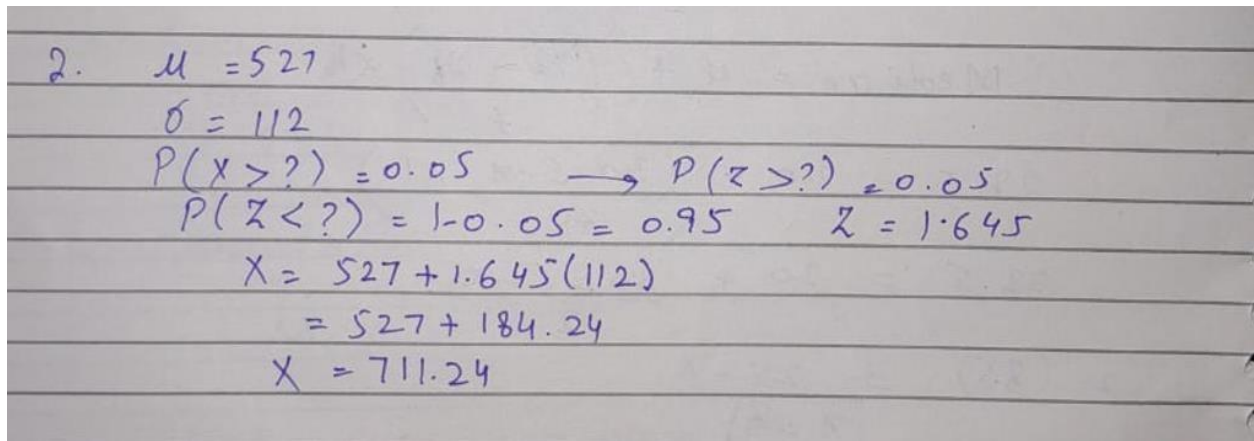 2. μ = 527
σ = 112
P(X > ?) = 0.05 → P(Z > ?) = 0.05
P(Z < ?) = 1-0.05 = 0.95 Z = 1.645
X = 527 + 1.645(112)
= 527 + 184.24
X = 711.24